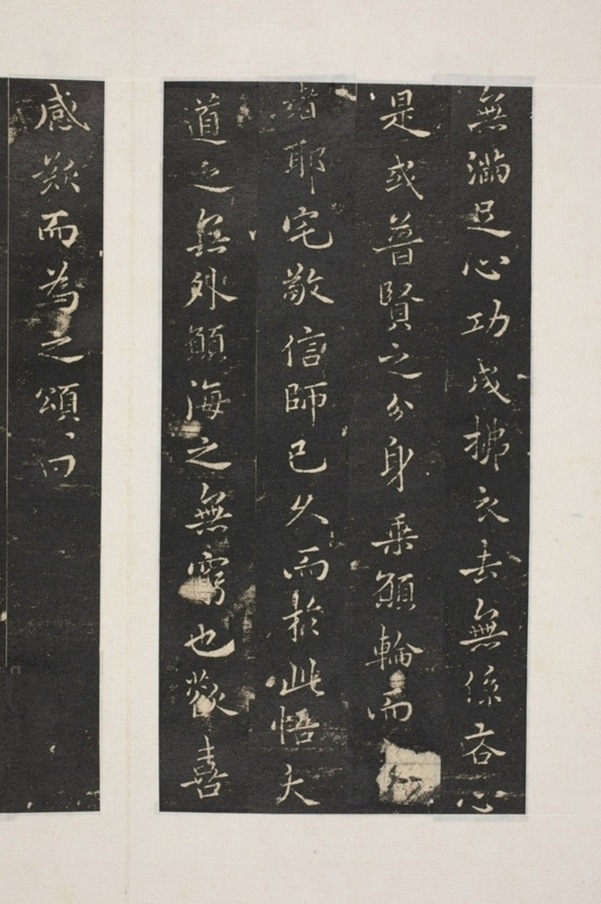 無滿足心功成拂衣去無係吝心
是或普賢之分身乘願輪而
者耶宅敬信師已久而於此悟大
道之無外願海之無窮也歡喜
感歎而為之頌曰